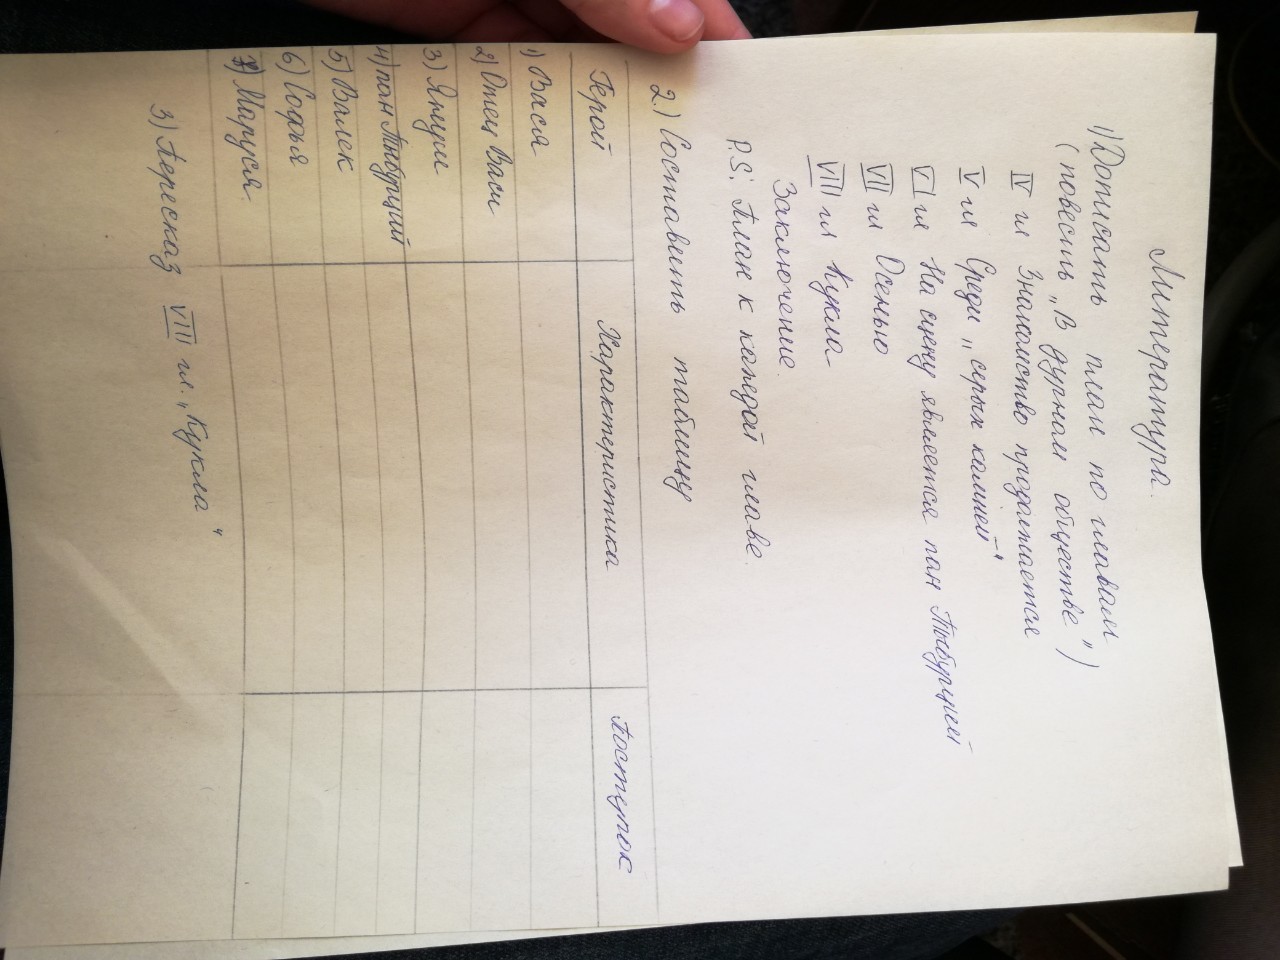 Литература.
1) Дописать план по главам
(повесть „В дурном обществе")
IV гл Знакомство продолжается
V гл Среди „серых камней"
VI гл На сцену является пан Тыбурций
VII гл Осенью
VIII гл Кукла
Заключение.
P.S: План к каждой главе.
2.) Составить таблицу
Герой Характеристика Поступок
1) Вася
2) Отец Васи
3) Януш
4) пан Тыбурций
5) Валек
6) Софья
7) Маруся
3) Пересказ VIII гл. „Кукла"